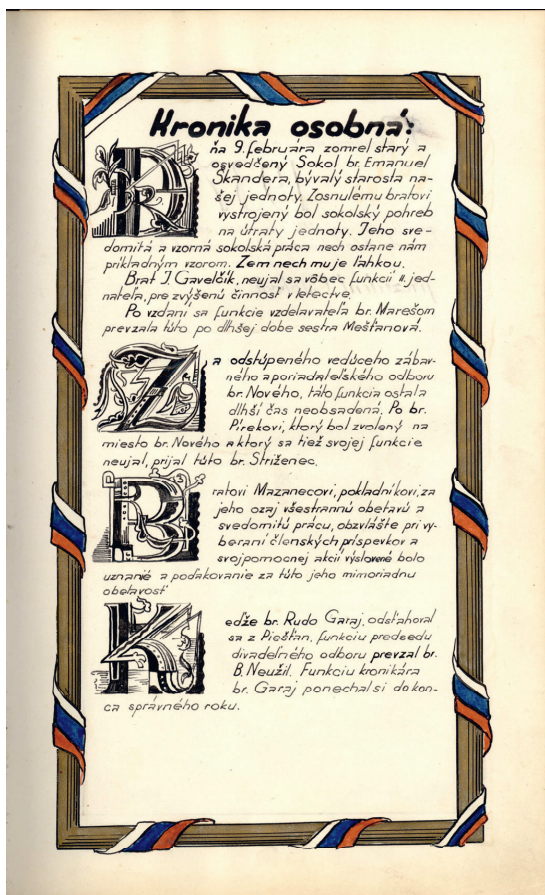 Kronika osobná:
Dňa 9. februára zomrel starý a
osvedčený Sokol br. Emanuel
Škandera, bývalý starosta na-
šej jednoty. Zosnulému bratovi
vystrojený bol sokolský pohreb
na útraty jednoty. Jeho sve-
domitá a vzorná sokolská práca nech ostane nám
príkladným vzorom. Zem nech mu je ľahkou.
Brat J. Gavelčík, neujal sa vôbec funkcií II. jed-
nateľa, pre zvýšenú činnosť v letectve.
Po vzdaní sa funkcie vzdelavateľa br. Marešom
prevzala túto po dlhšej dobe sestra Mešťanová.
Za odstúpeného vedúceho zábav-
ného a poriadateľského odboru
br. Nového, táto funkcia ostala
dlhší čas neobsadená. Po br.
Pírekovi, ktorý bol zvolený na
miesto br. Nového a ktorý sa tiež svojej funkcie
neujal, prijal túto br. Striženec.
Bratovi Mazanecovi, pokladníkovi, za
jeho ozaj všestrannú obetavú a
svedomitú prácu, obzvlášte pri vy-
beraní členských príspevkov a
svojpomocnej akcií výslovené bolo
uznanie a poďakovanie za túto jeho mimoriadnu
obetavosť
Keďže br. Rudo Garaj, odsťahoval
sa z Piešťan, funkciu predsedu
divadeľného odboru prevzal br.
B. Neužil. Funkciu kronikára
br. Garaj ponechal si do kon-
ca správneho roku.